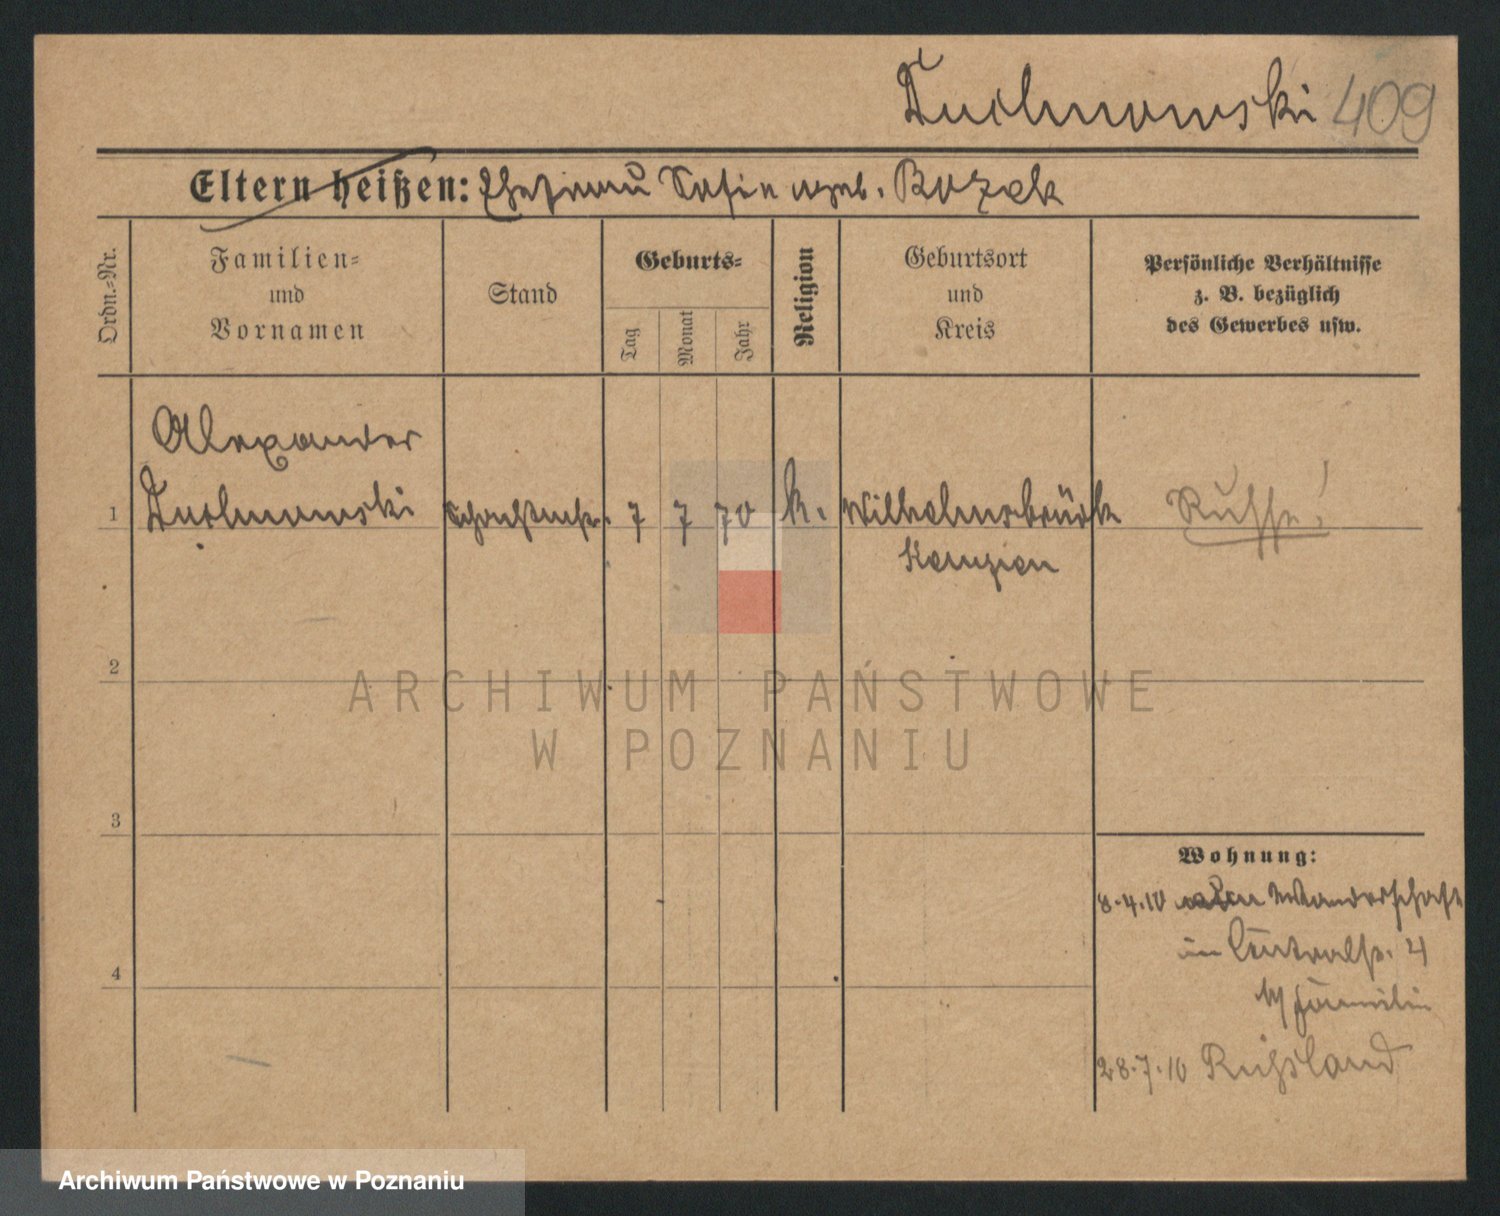 Tuchnowski 409
Eltern heißen: Ehefrau Sofie geb. Bozek
Ordn.-Nr.
Familien-
und
Vornamen
Stand
Geburts-
Tag
Monat
Jahr
Religion
Geburtsort
und
Kreis
Persönliche Verhältnisse
z. B. bezüglich
des Gewerbes usw.
Alexander
1 Tuchnowski 7 7 70 k. Wilhelmsbrück Russe!
Kempen
2
ARCHIWUM PAŃSTWOWE
W POZNANIU
3
Wohnung:
8.4.10 Wanderschaft
in Centralstr. 4
4
m/ Familie
28.7.10 Russland
Archiwum Państwowe w Poznaniu